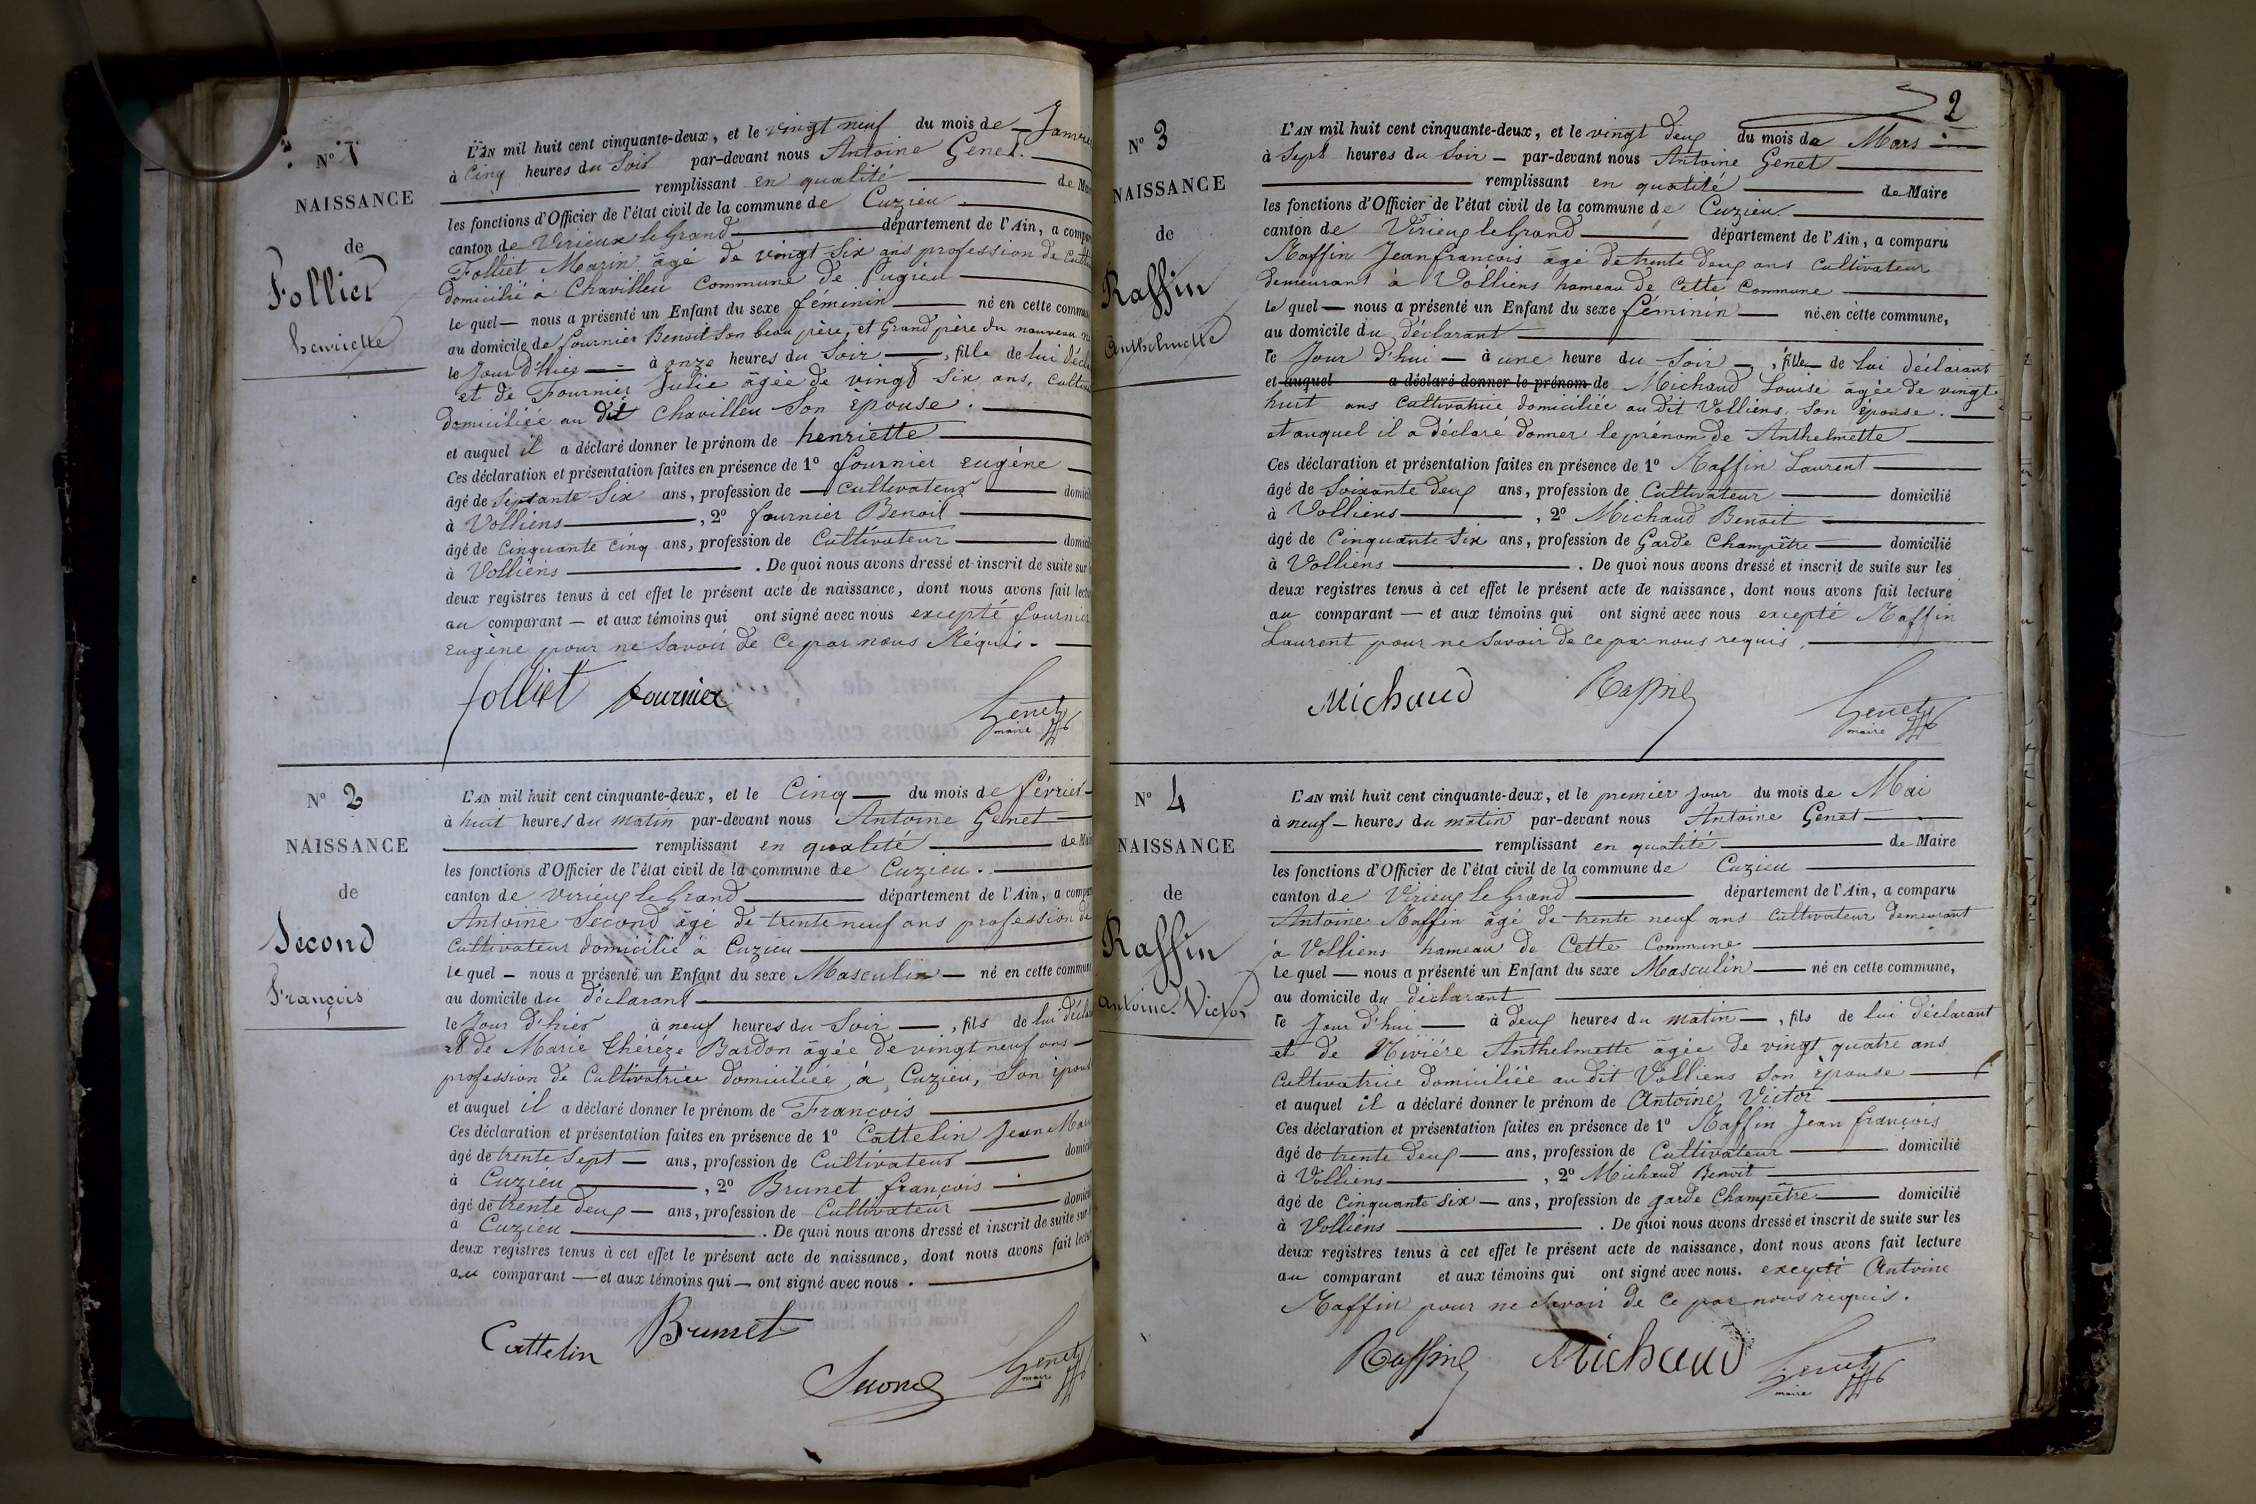 N° 1
NAISSANCE
de
Folliet
henriette
L'AN mil huit cent cinquante-deux, et le vingt neuf du mois de Janvier
à Cinq heures du Soir par-devant nous Antoine Genet.
remplissant en qualité de Mai
les fonctions d'Officier de l'état civil de la commune de Cuzieu.
canton de Virieux le Grand département de l'Ain, a compar
Folliet Marin âgé de vingt Six ans profession de Cultiv
domicilié à Chavilleu Commune de Pugieu
le quel nous a présenté un Enfant du sexe féminin né en cette commun
au domicile de fournier Benoit Son beau père, et Grand père du nouveau né
le Jour d'hier à onze heures du Soir, fille de lui décla
et de Fournier Julie âgée de vingt Six ans, Cultiva
domiciliée au dit Chavilleu Son Epouse.
et auquel il a déclaré donner le prénom de henriette
Ces déclaration et présentation faites en présence de 1° fournier Eugène
âgé de Septante Six ans, profession de Cultivateur domicili
à Volliens, 2° fournier Benoit
âgé de Cinquante Cinq ans, profession de Cultivateur domicili
à Volliens. De quoi nous avons dressé et inscrit de suite sur l
deux registres tenus à cet effet le présent acte de naissance, dont nous avons fait lectu
au comparant et aux témoins qui ont signé avec nous excepté fournier
Eugène pour ne Savoir de Ce par nous Réquis.
folliet fournier Genet
maire
N° 2
NAISSANCE
de
Second
François
L'AN mil huit cent cinquante-deux, et le Cinq du mois de février
à huit heures du matin par-devant nous Antoine Genet
remplissant en qualité de Mair
les fonctions d'Officier de l'état civil de la commune de Cuzieu.
canton de virieux le Grand département de l'Ain, a compar
Antoine Second âgé de trente neuf ans profession de
Cultivateur domicilié à Cuzieu
le quel nous a présenté un Enfant du sexe Masculin né en cette commune
au domicile du déclarant
le Jour d'hier à neuf heures du Soir, fils de lui décla
et de Marie Théréze Bardon âgée de vingt neuf ans
profession de Cultivatrice domiciliée à Cuzieu, Son épouse
et auquel il a déclaré donner le prénom de François
Ces déclaration et présentation faites en présence de 1° Cattelin Jean Mari
âgé de trente Sept ans, profession de Cultivateur domicili
à Cuzieu, 2° Brunet françois
âgé de trente deux ans, profession de Cultivateur domicili
à Cuzieu. De quoi nous avons dressé et inscrit de suite sur l
deux registres tenus à cet effet le présent acte de naissance, dont nous avons fait lectur
au comparant et aux témoins qui ont signé avec nous.
Cattelin Brunet
Second Genet
maire
2
N° 3
NAISSANCE
de
Raffin
Anthelmette
L'AN mil huit cent cinquante-deux, et le vingt deux du mois de Mars
à Sept heures du Soir par-devant nous Antoine Genet
remplissant en qualité de Maire
les fonctions d'Officier de l'état civil de la commune de Cuzieu.
canton de Virieux le Grand département de l'Ain, a comparu
Raffin Jean françois âgé de trente deux ans Cultivateur
demeurant à Volliens hameau de Cette Commune
le quel nous a présenté un Enfant du sexe féminin né en cette commune,
au domicile du déclarant
le Jour d'hui à une heure du Soir, fille de lui déclarant
et auquel a déclaré donner le prénom de Michaud Louise âgée de vingt
huit ans Cultivatrice domiciliée au dit Volliens Son épouse.
et auquel il a déclaré donner le prénom de Anthelmette
Ces déclaration et présentation faites en présence de 1° Raffin Laurent
âgé de Soixante deux ans, profession de Cultivateur domicilié
à Volliens, 2° Michaud Benoit
âgé de Cinquante Six ans, profession de Garde Champêtre domicilié
à Volliens. De quoi nous avons dressé et inscrit de suite sur les
deux registres tenus à cet effet le présent acte de naissance, dont nous avons fait lecture
au comparant et aux témoins qui ont signé avec nous excepté Raffin
Laurent pour ne Savoir de ce par nous requis.
Michaud Raffin Genet
maire
N° 4
NAISSANCE
de
Raffin
antoine Victor
L'AN mil huit cent cinquante-deux, et le premier jour du mois de Mai
à neuf heures du matin par-devant nous Antoine Genet
remplissant en qualité de Maire
les fonctions d'Officier de l'état civil de la commune de Cuzieu
canton de Virieux le Grand département de l'Ain, a comparu
Antoine Raffin âgé de trente neuf ans Cultivateur demeurant
à Volliens hameau de Cette Commune
le quel nous a présenté un Enfant du sexe Masculin né en cette commune,
au domicile du déclarant
le Jour d'hui à deux heures du matin, fils de lui déclarant
et de Rivière Anthelmette âgée de vingt quatre ans
Cultivatrice domiciliée au dit Volliens Son épouse
et auquel il a déclaré donner le prénom de Antoine Victor
Ces déclaration et présentation faites en présence de 1° Raffin Jean françois
âgé de trente deux ans, profession de Cultivateur domicilié
à Volliens, 2° Michaud Benoit
âgé de Cinquante Six ans, profession de garde Champêtre domicilié
à Volliens. De quoi nous avons dressé et inscrit de suite sur les
deux registres tenus à cet effet le présent acte de naissance, dont nous avons fait lecture
au comparant et aux témoins qui ont signé avec nous. excepté Antoine
Raffin pour ne Savoir de Ce par nous requis.
Raffin Michaud Genet
maire